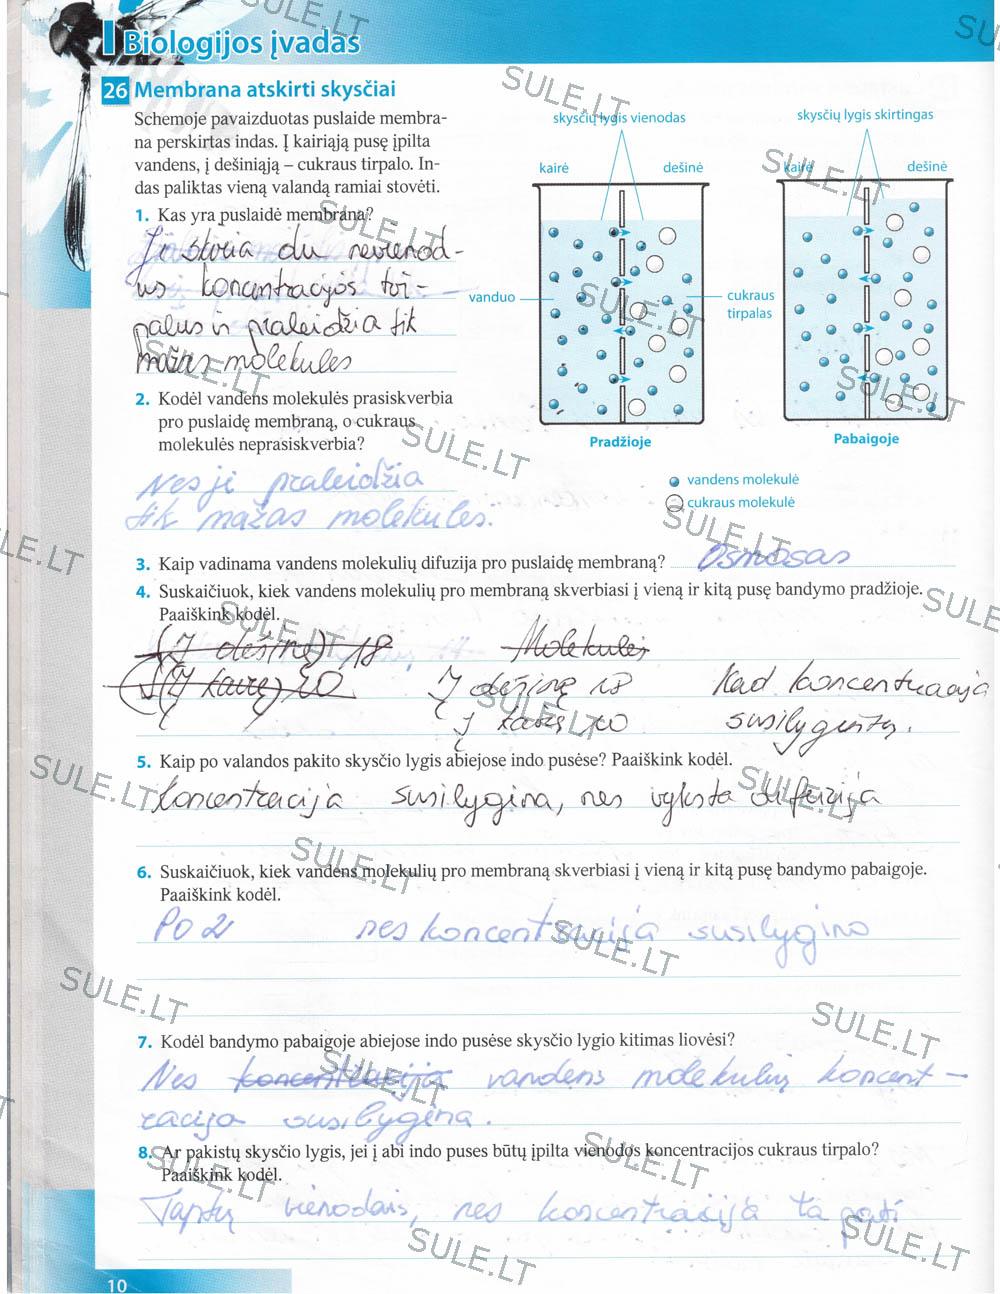 Biologijos įvadas
26 Membrana atskirti skysčiai
Schemoje pavaizduotas puslaide membra-
na perskirtas indas. Į kairiąją pusę įpilta
vandens, į dešiniąją – cukraus tirpalo. In-
das paliktas vieną valandą ramiai stovėti.
1. Kas yra puslaidė membrana?
Ji skiria du nevienod-
us koncentracijos tir-
palus ir praleidžia tik
mažas molekules
skysčių lygis vienodas
kairė
dešinė
vanduo
cukraus
tirpalas
Pradžioje
skysčių lygis skirtingas
kairė
dešinė
Pabaigoje
vandens molekulė
cukraus molekulė
2. Kodėl vandens molekulės prasiskverbia
pro puslaidę membraną, o cukraus
molekulės neprasiskverbia?
Nes ji praleidžia
tik mažas molekules.
3. Kaip vadinama vandens molekulių difuzija pro puslaidę membraną? Osmosas
4. Suskaičiuok, kiek vandens molekulių pro membraną skverbiasi į vieną ir kitą pusę bandymo pradžioje.
Paaiškink kodėl.
(Į dešinę) 18 Molekulės
(Į kairę) 20 Į dešinę 18 Kad koncentracija
Į kairę susilygintų.
5. Kaip po valandos pakito skysčio lygis abiejose indo pusėse? Paaiškink kodėl.
Koncentracija susilygina, nes vyksta difuzija
6. Suskaičiuok, kiek vandens molekulių pro membraną skverbiasi į vieną ir kitą pusę bandymo pabaigoje.
Paaiškink kodėl.
Po 2 nes koncentracija susilygino
7. Kodėl bandymo pabaigoje abiejose indo pusėse skysčio lygio kitimas liovėsi?
Nes koncentracija vandens molekulių koncent-
racija susilygina.
8. Ar pakistų skysčio lygis, jei į abi indo puses būtų įpilta vienodos koncentracijos cukraus tirpalo?
Paaiškink kodėl.
Taptų vienodais, nes koncentracija ta pati
10
SULE.LT